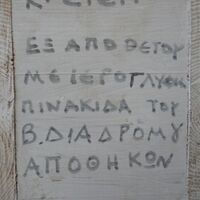 ΕΞ ΑΠΟΘΕΤΟΥ
ΜΕ ΙΕΡΟΓΛΥΦΙΚ
ΠΙΝΑΚΙΔΑ ΤΟΥ
Β. ΔΙΑΔΡΟΜΟΥ
ΑΠΟΘΗΚΩΝ